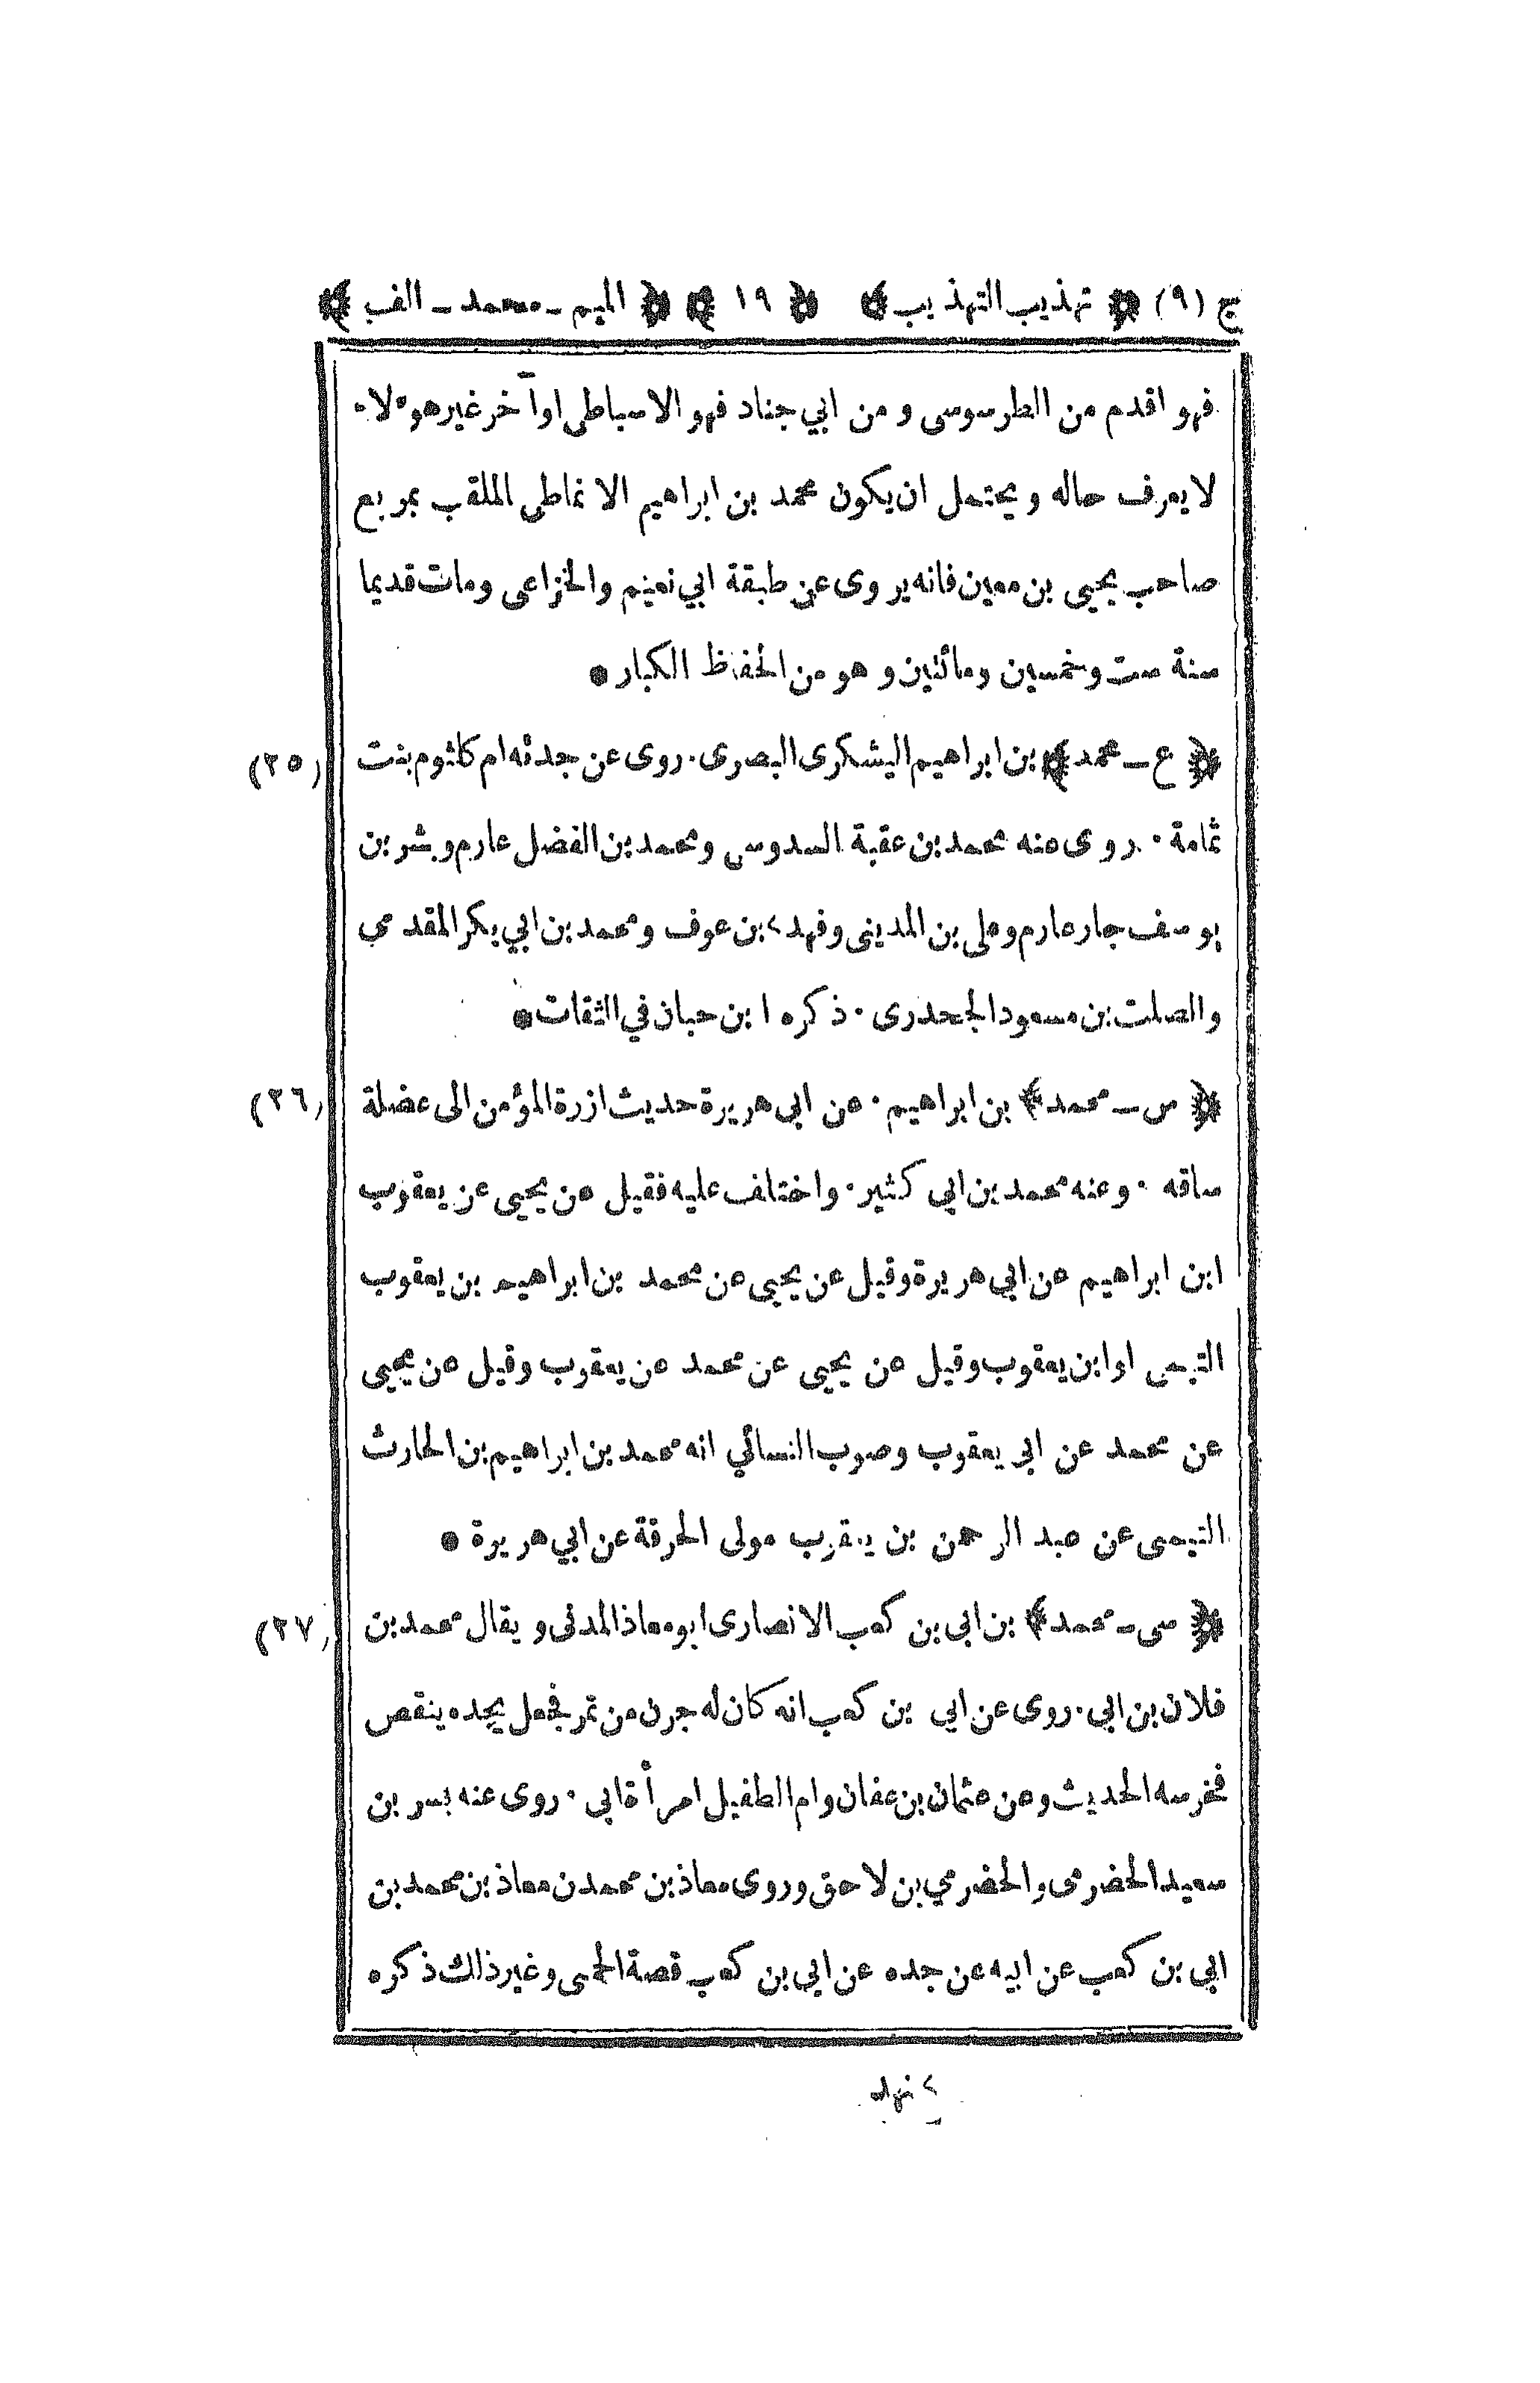 ج (٩) ﴿ تهذيب التهذيب ﴾ ﴿ ١٩ ﴾ ﴿ الميم - محمد - الف ﴾
فهو اقدم من الطرسوسى و من ابي جناد فهو الاسباطى او آخر غير هؤلاء
لا يعرف حاله و يحتمل ان يكون محمد بن ابراهيم الانماطى الملقب بمربع
صاحب يحيى بن معين فانه يروى عن طبقة ابي نعيم والخزاعى ومات قديما
سنة ست وخمسين ومائتين و هو من الحفاظ الكبار ●
(٢٥) ﴿ ع - محمد ﴾ بن ابراهيم اليشكرى البصرى. روى عن جدته ام كلثوم بنت
ثمامة . روى عنه محمد بن عقبة السدوسى ومحمد بن الفضل عارم وبشر بن
يوسف جار عارم وعلى بن المدينى وفهد ٢ بن عوف ومحمد بن ابي بكر المقدمي
والصلت بن مسعود الجحدرى . ذكره ابن حبان في الثقات ●
(٢٦) ﴿ س - محمد ﴾ بن ابراهيم . عن ابى هريرة حديث ازرة المؤمن الى عضلة
ساقه . وعنه محمد بن ابى كثير . واختلف عليه فقيل عن يحيى عن يعقوب
ابن ابراهيم عن ابي هريرة وقيل عن يحيى عن محمد بن ابراهيم بن يعقوب
التيمى او ابن يعقوب وقيل عن يحيى عن محمد عن يعقوب وقيل عن يحيى
عن محمد عن ابى يعقوب وصوب النسائي انه محمد بن ابراهيم بن الحارث
التيمى عن عبد الرحمن بن يعقوب مولى الحرقة عن ابي هريرة ●
(٢٧) ﴿ سى - محمد ﴾ بن ابى بن كعب الانصارى ابو معاذ المدنى و يقال محمد بن
فلان بن ابي . روى عن ابي بن كعب انه كان له جرن من تمر فجعل يجده ينقص
فحرسه الحديث وعن عثمان بن عفان وام الطفيل امرأة ابي . روى عنه بسر بن
سعيد الحضرمى والحضرمي بن لاحق وروى معاذ بن محمد ن معاذ بن محمد بن
ابي بن كعب عن ابيه عن جده عن ابي بن كعب قصة الحمى وغير ذلك ذكره
٢ نهد